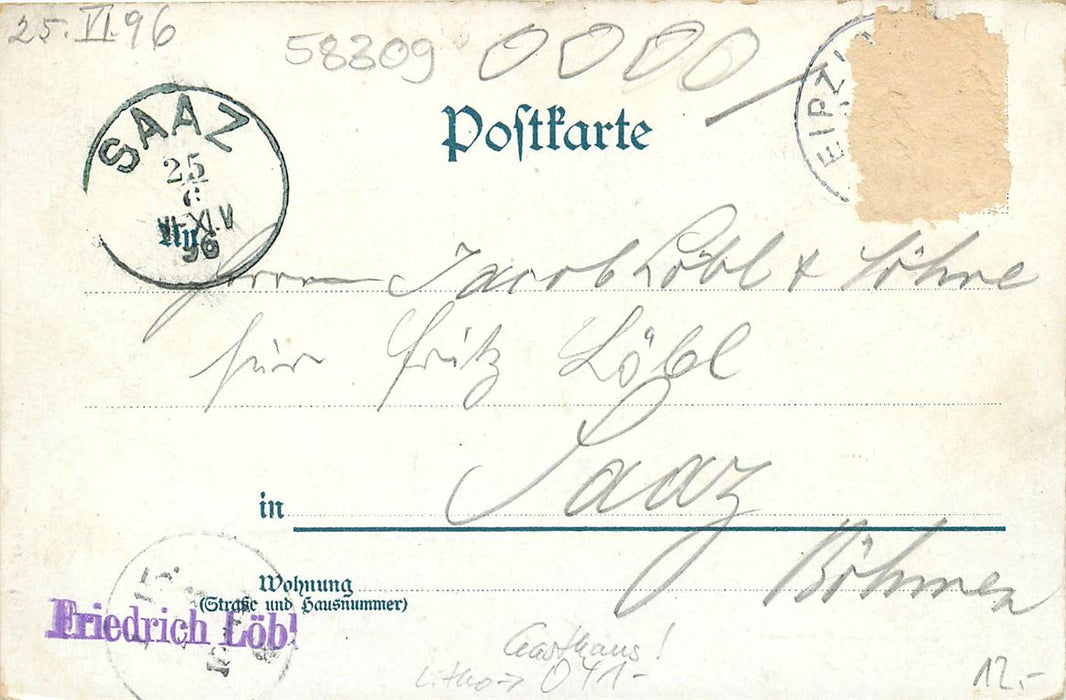 25.VI.96
58309
Postkarte
SAAZ
25
6
96
EIPZI
An
Herrn Jacob Löbl & Söhne
für Fritz Löbl
in Saaz
Böhmen
Wohnung
(Straße und Hausnummer)
Friedrich Löbl
Gasthaus!
Litho → 041-
12,-